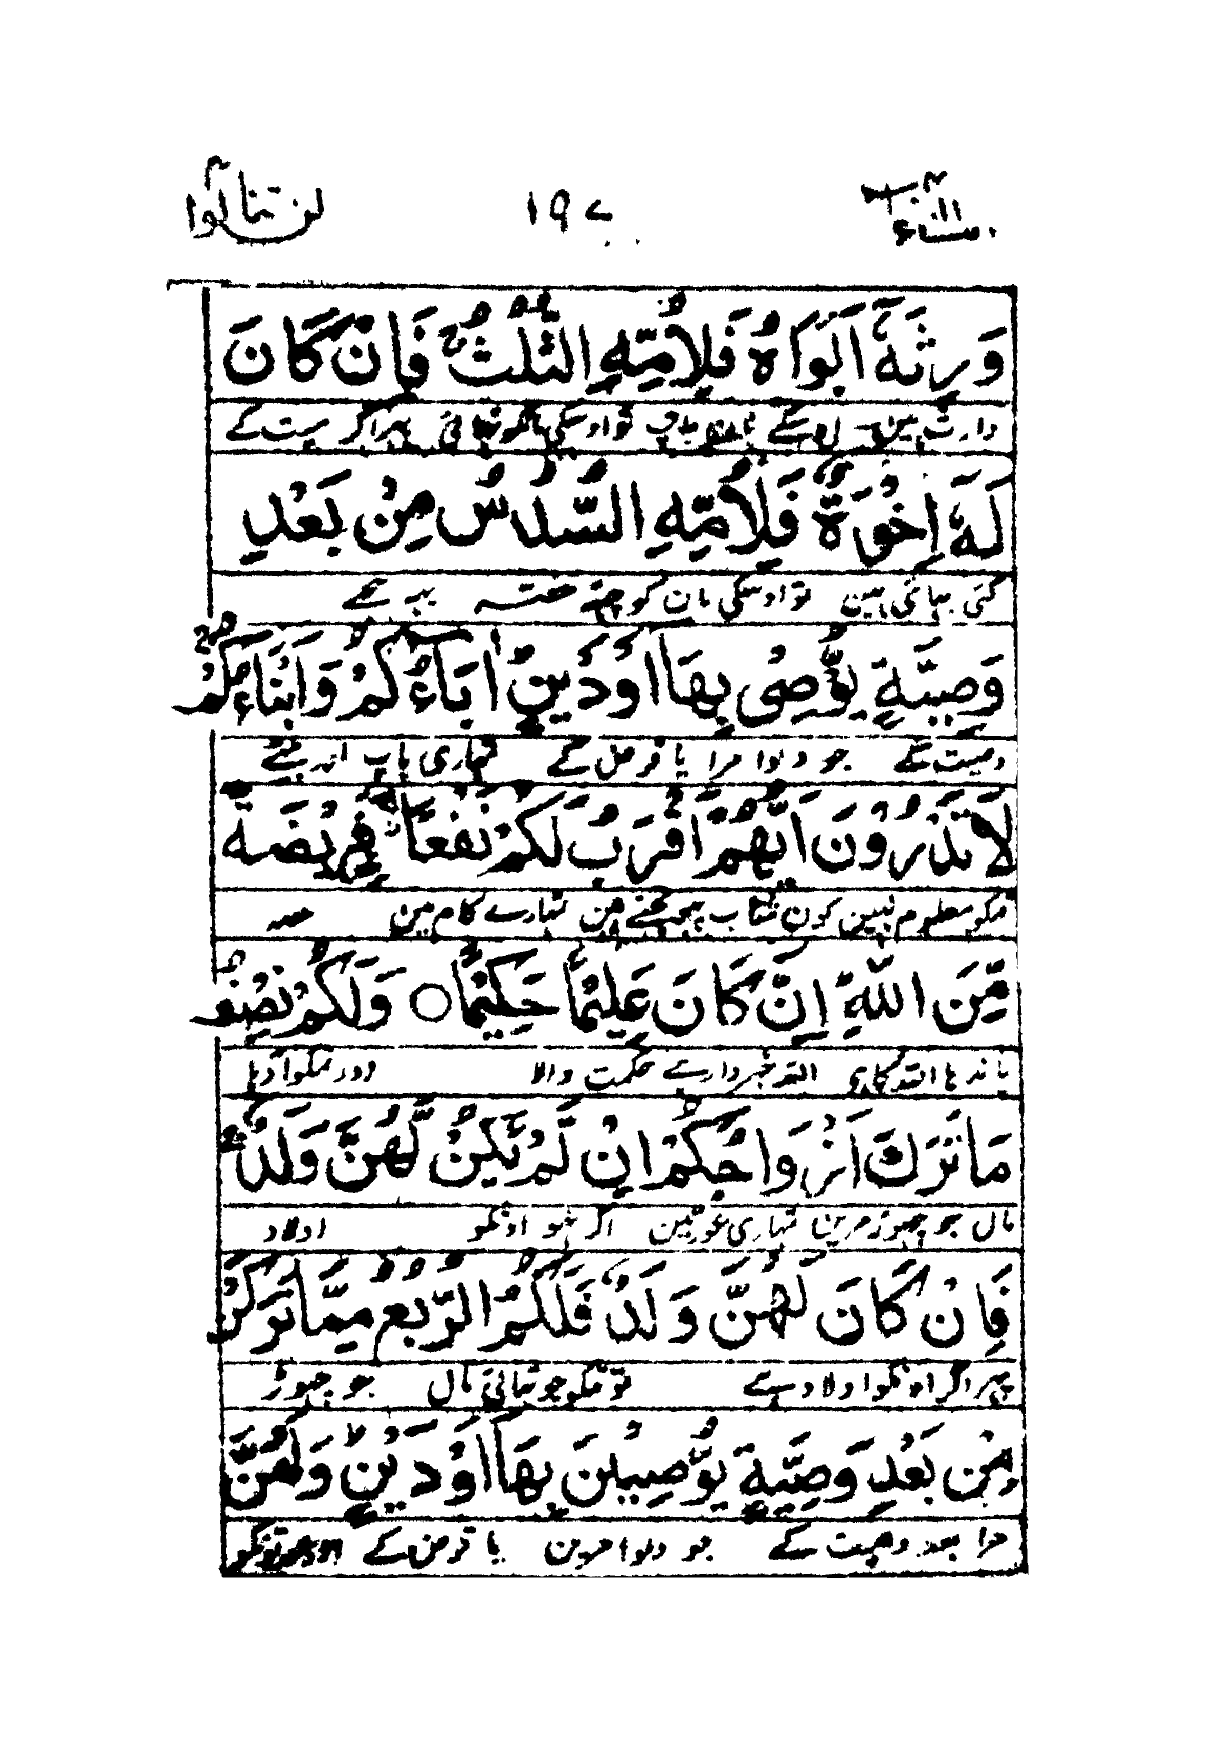 النساء ٤ ١٩٧ لن تنالوا ٤
وَوَرِثَهٗٓ اَبَوٰاهُ فَلِاُمِّهِ الثُّلُثُ ۚ فَاِنْ كَانَ
وارث ہین اوسکے باپ تو اوسکی مانکو تہائی پہر اگر ہیت کے
لَهٗٓ اِخْوَةٌ فَلِاُمِّهِ السُّدُسُ مِنْ بَعْدِ
کئی بہائی ہین تو اوسکی مان کو چہٹا حصہ یہہ پیچھے
وَصِيَّةٍ يُّوْصِىْ بِهَآ اَوْ دَيْنٍ ؕ اٰبَآؤُكُمْ وَاَبْنَآؤُكُمْ
وصیت کے جو دلوا مرا یا قرض کے تمہاری باپ اور بیٹے
لَا تَدْرُوْنَ اَيُّهُمْ اَقْرَبُ لَكُمْ نَفْعًا ؕ فَرِيْضَةً
تمکو معلوم نہین کون شتاب پہنچتے ہین تمہارے کام مین حصہ
مِّنَ اللّٰهِ ؕ اِنَّ اللّٰهَ كَانَ عَلِيْمًا حَكِيْمًا ○ وَلَكُمْ نِصْفُ
باندہا اللہ کا ہی اللہ خبردار ہے حکمت والا اور تمکو آدہا
مَا تَرَكَ اَزْوَاجُكُمْ اِنْ لَّمْ يَكُنْ لَّهُنَّ وَلَدٌ ۚ
مال جو چہوڑ مرین تمہاری عورتین اگر نہو اونکو اولاد
فَاِنْ كَانَ لَهُنَّ وَلَدٌ فَلَكُمُ الرُّبُعُ مِمَّا تَرَكْنَ
پہر اگر اونکو اولاد ہے تو تمکو چوتہائی مال جو چہوڑ
مِنْ بَعْدِ وَصِيَّةٍ يُّوْصِيْنَ بِهَآ اَوْ دَيْنٍ ؕ وَلَهُنَّ
مرا بعد وصیت کے جو دلوا مرین یا قرض کے اور عورتونکو